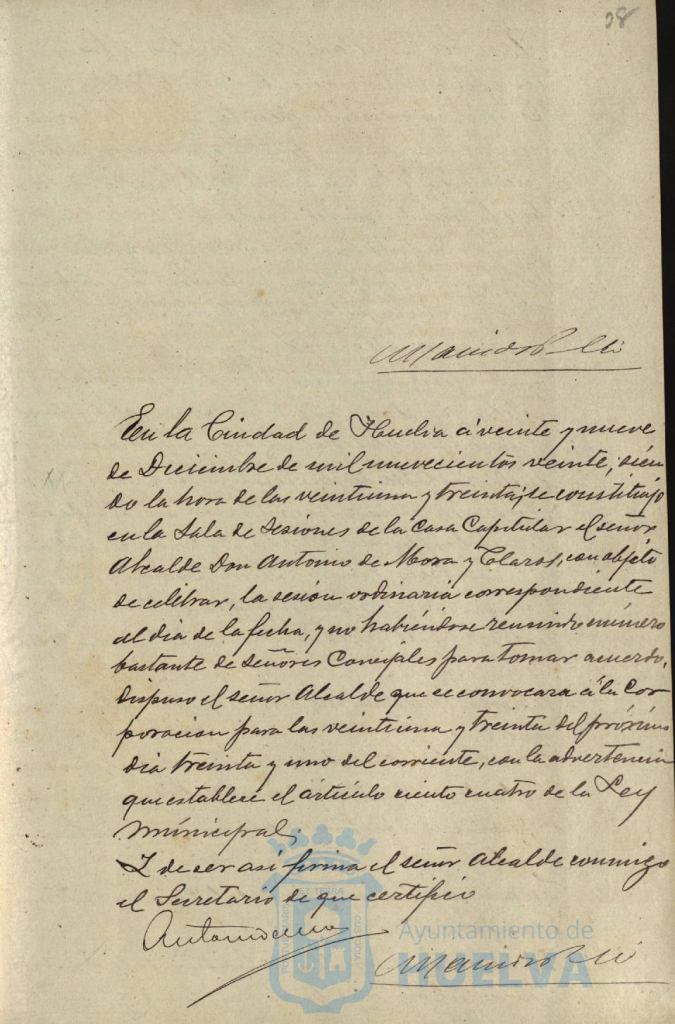 28
En la Ciudad de Huelva á veinte y nueve
de Diciembre de mil nuevecientos veinte, sien
do la hora de las veintiuna y treinta, se constituyó
en la Sala de Sesiones de la Casa Capitular el señor
Alcalde Don Antonio de Mora y Claros, con objeto
de celebrar, la sesión ordinaria correspondiente
al dia de la fecha, y no habiéndose reunido número
bastante de señores Concejales para tomar acuerdo,
dispuso el señor Alcalde que se convocara á la Cor
poracion para las veintiuna y treinta del próximo
dia treinta y uno del corriente, con la advertencia
que establece el artículo ciento cuatro de la Ley
Municipal.
Y de ser asi firma el señor Alcalde conmigo
el Secretario de que certifico
Antonio
Ayuntamiento de
HUELVA